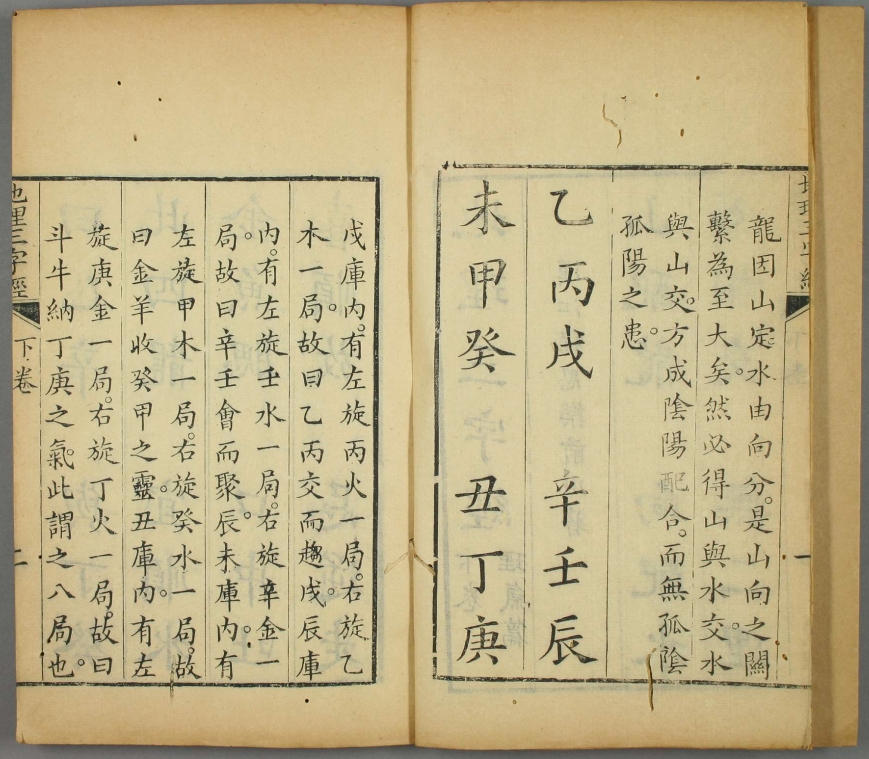 龍因山定。水由向分。是山向之關
繫為至大矣。然必得山與水交。水
與山交。方成陰陽配合。而無孤陰
孤陽之患。
乙丙戌 辛壬辰
未甲癸 丑丁庚
戌庫內。有左旋丙火一局。右旋乙
木一局。故曰乙丙交而趨戌。辰庫
內。有左旋壬水一局。右旋辛金一
局。故曰辛壬會而聚辰。未庫內。有
左旋甲木一局。右旋癸水一局。故
曰金羊收癸甲之靈。丑庫內。有左
旋庚金一局。右旋丁火一局。故曰
斗牛納丁庚之氣。此謂之八局也。
地理三字經 下卷 二